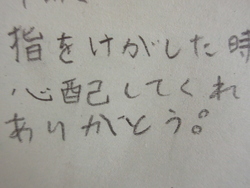 指をけがした時
心配してくれ
ありがとう。